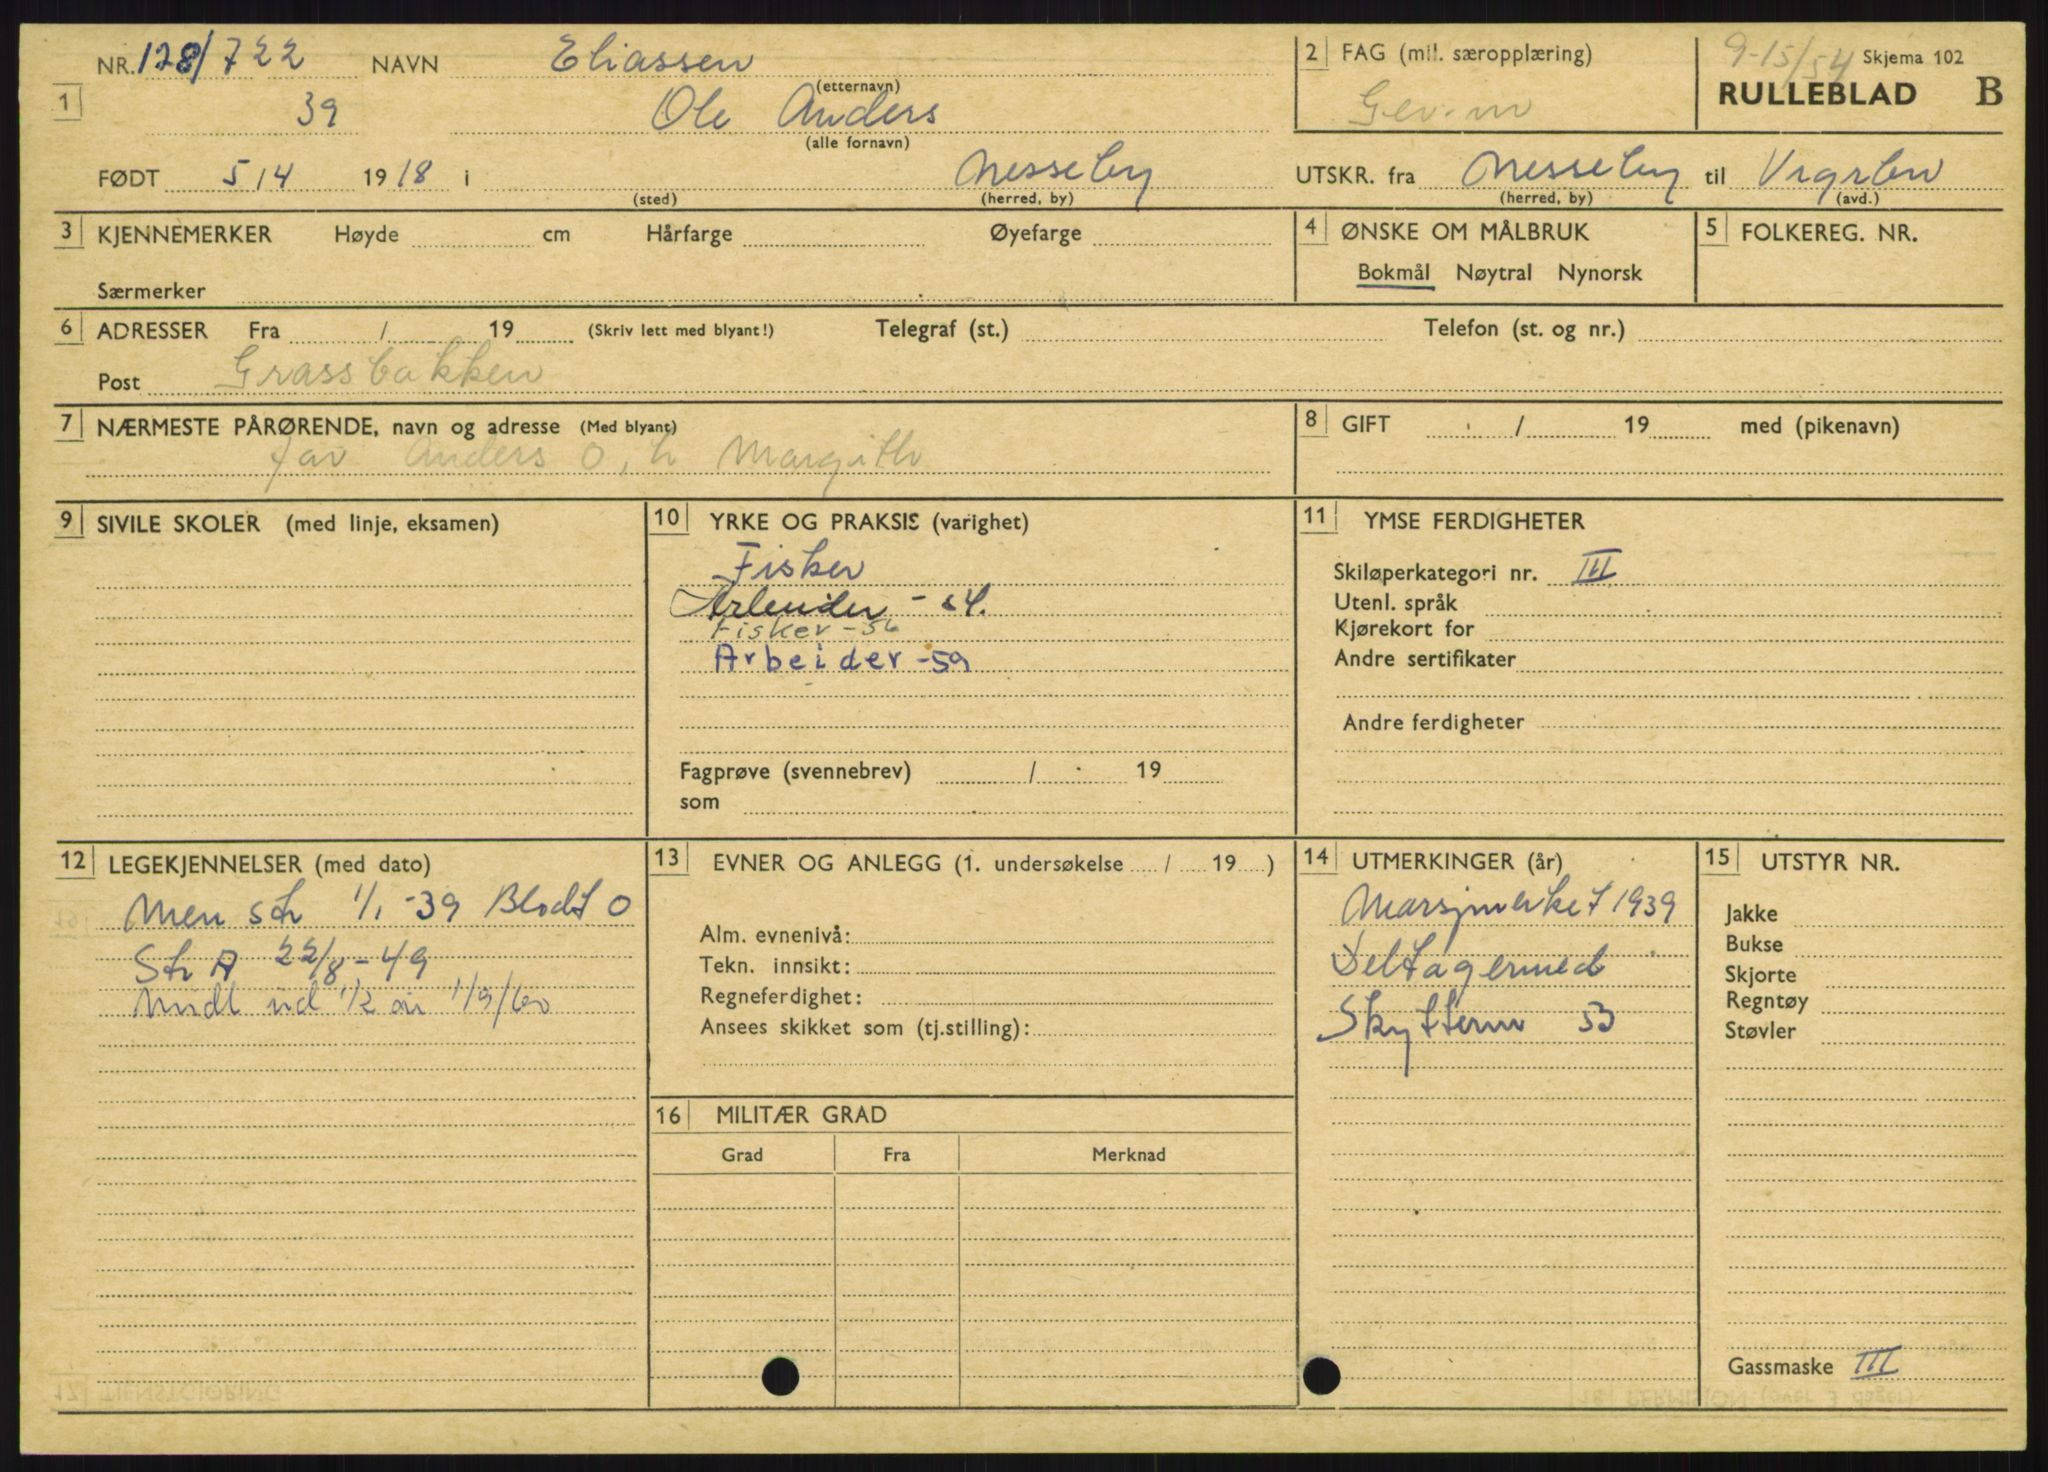 NR. 128/722 NAVN Eliassen
(etternavn)
1 39 Ole Anders
(alle fornavn)
2 FAG (mil. særopplæring)
Gev.m
9-15/54 Skjema 102
RULLEBLAD B
FØDT 5/4 1918 i Nesseby
(sted) (herred, by)
UTSKR. fra Nesseby til
(herred, by) (avd.)
3 KJENNEMERKER Høyde cm Hårfarge Øyefarge
Særmerker
4 ØNSKE OM MÅLBRUK
Bokmål Nøytral Nynorsk
5 FOLKEREG. NR.
6 ADRESSER Fra / 19 (Skriv lett med blyant!) Telegraf (st.) Telefon (st. og nr.)
Post Grassbakken
7 NÆRMESTE PÅRØRENDE, navn og adresse (Med blyant)
far Anders O, h Margith
8 GIFT / 19 med (pikenavn)
9 SIVILE SKOLER (med linje, eksamen)
10 YRKE OG PRAKSIS (varighet)
Fisker
Arbeider - 54.
Fisker - 56
Arbeider - 59
Fagprøve (svennebrev) / 19
som
11 YMSE FERDIGHETER
Skiløperkategori nr. III
Utenl. språk
Kjørekort for
Andre sertifikater
Andre ferdigheter
12 LEGEKJENNELSER (med dato)
Men str 1/1 -39 Blodt O
Str A 22/8 - 49
Midl ud 1/2 år 1/9/60
13 EVNER OG ANLEGG (1. undersøkelse / 19 )
Alm. evnenivå:
Tekn. innsikt:
Regneferdighet:
Ansees skikket som (tj.stilling):
14 UTMERKINGER (år)
Marsjmerket 1939
Deltagermed
Skytterm 53
15 UTSTYR NR.
Jakke
Bukse
Skjorte
Regntøy
Støvler
Gassmaske III
16 MILITÆR GRAD
Grad Fra Merknad